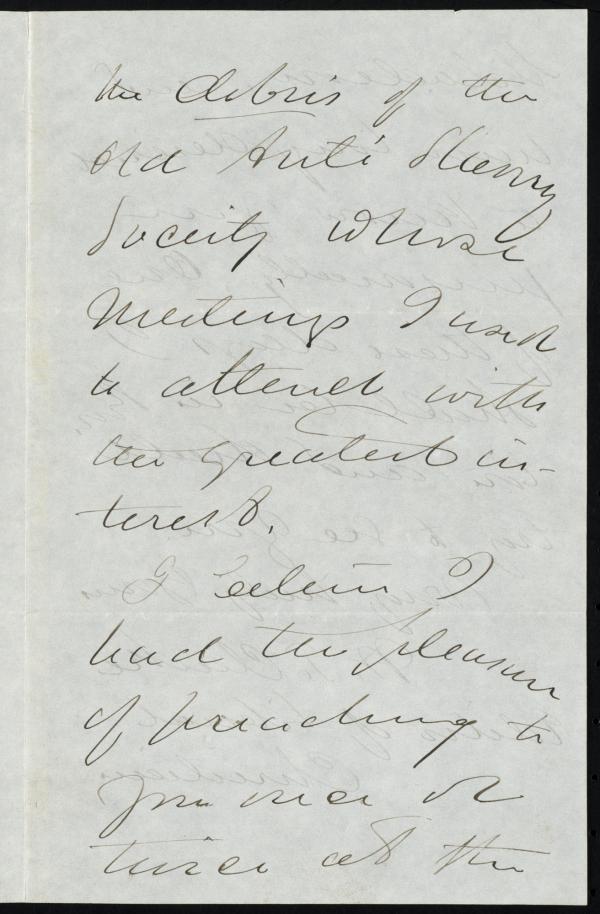 the debris of the
old Anti Slavery
Society whose
Meetings I used
to attend with
the greatest in-
terest.
I believe I
had the pleasure
of preaching to
you once or
twice at the